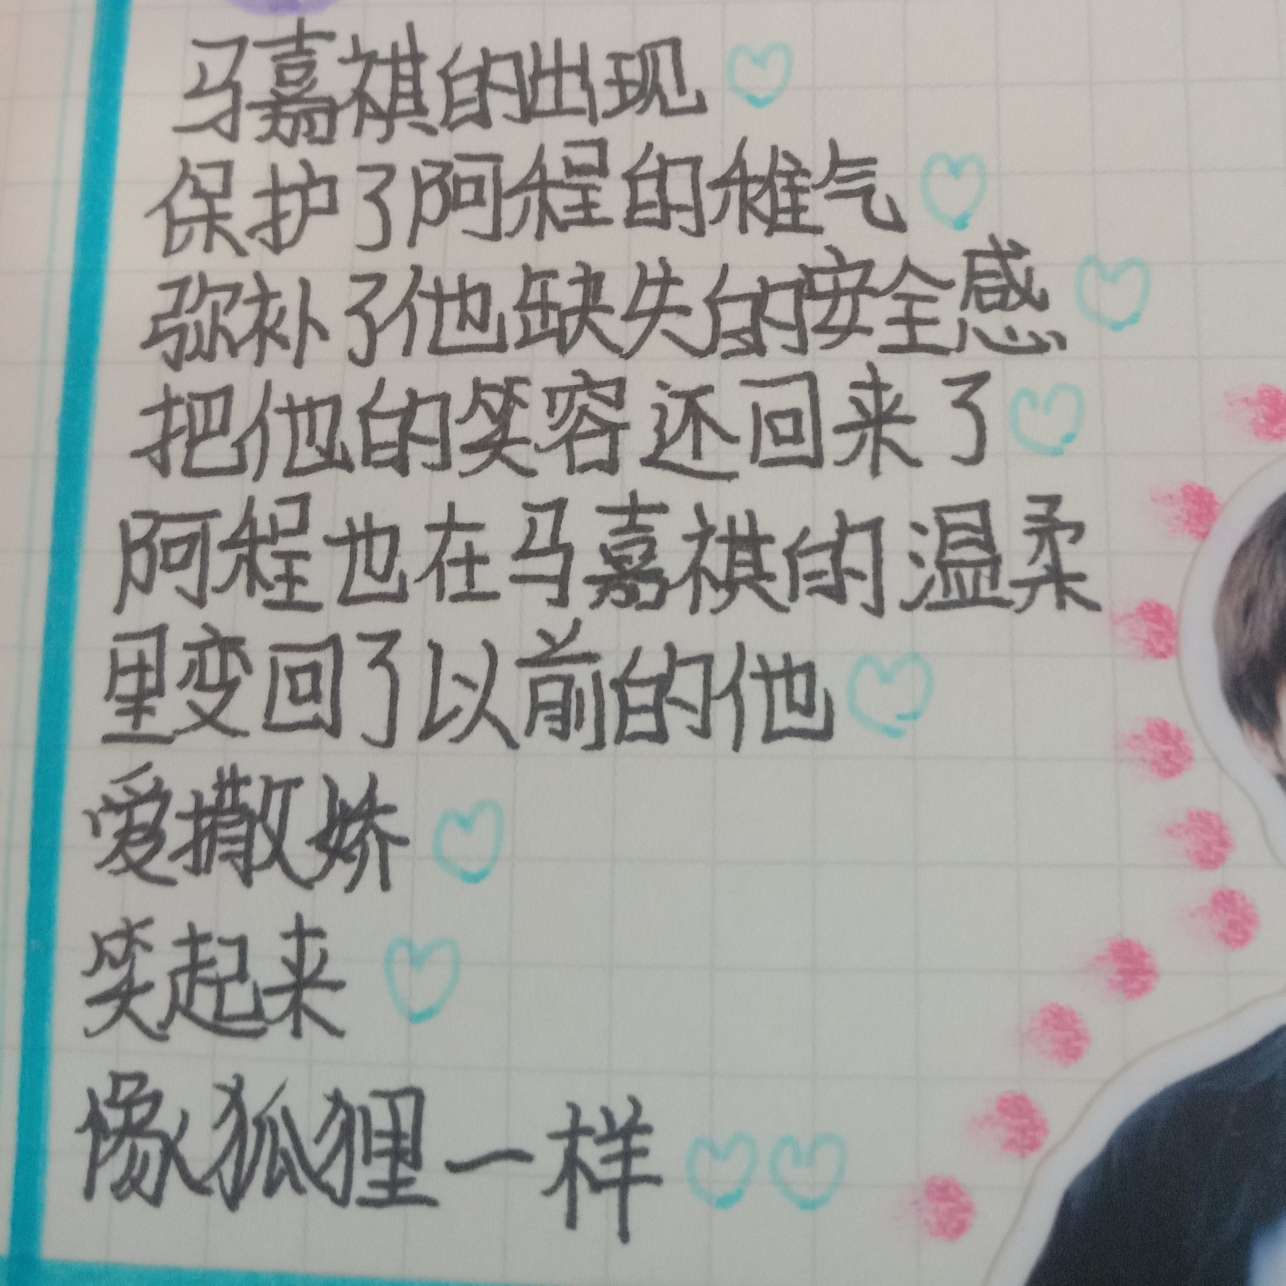 马嘉祺的出现
保护了阿程的稚气
弥补了他缺失的安全感
把他的笑容还回来了
阿程也在马嘉祺的温柔
里变回了以前的他
爱撒娇
笑起来
像狐狸一样